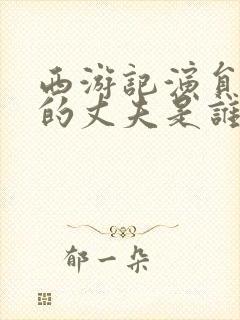 西游記演員
的丈夫是誰
郁一朵